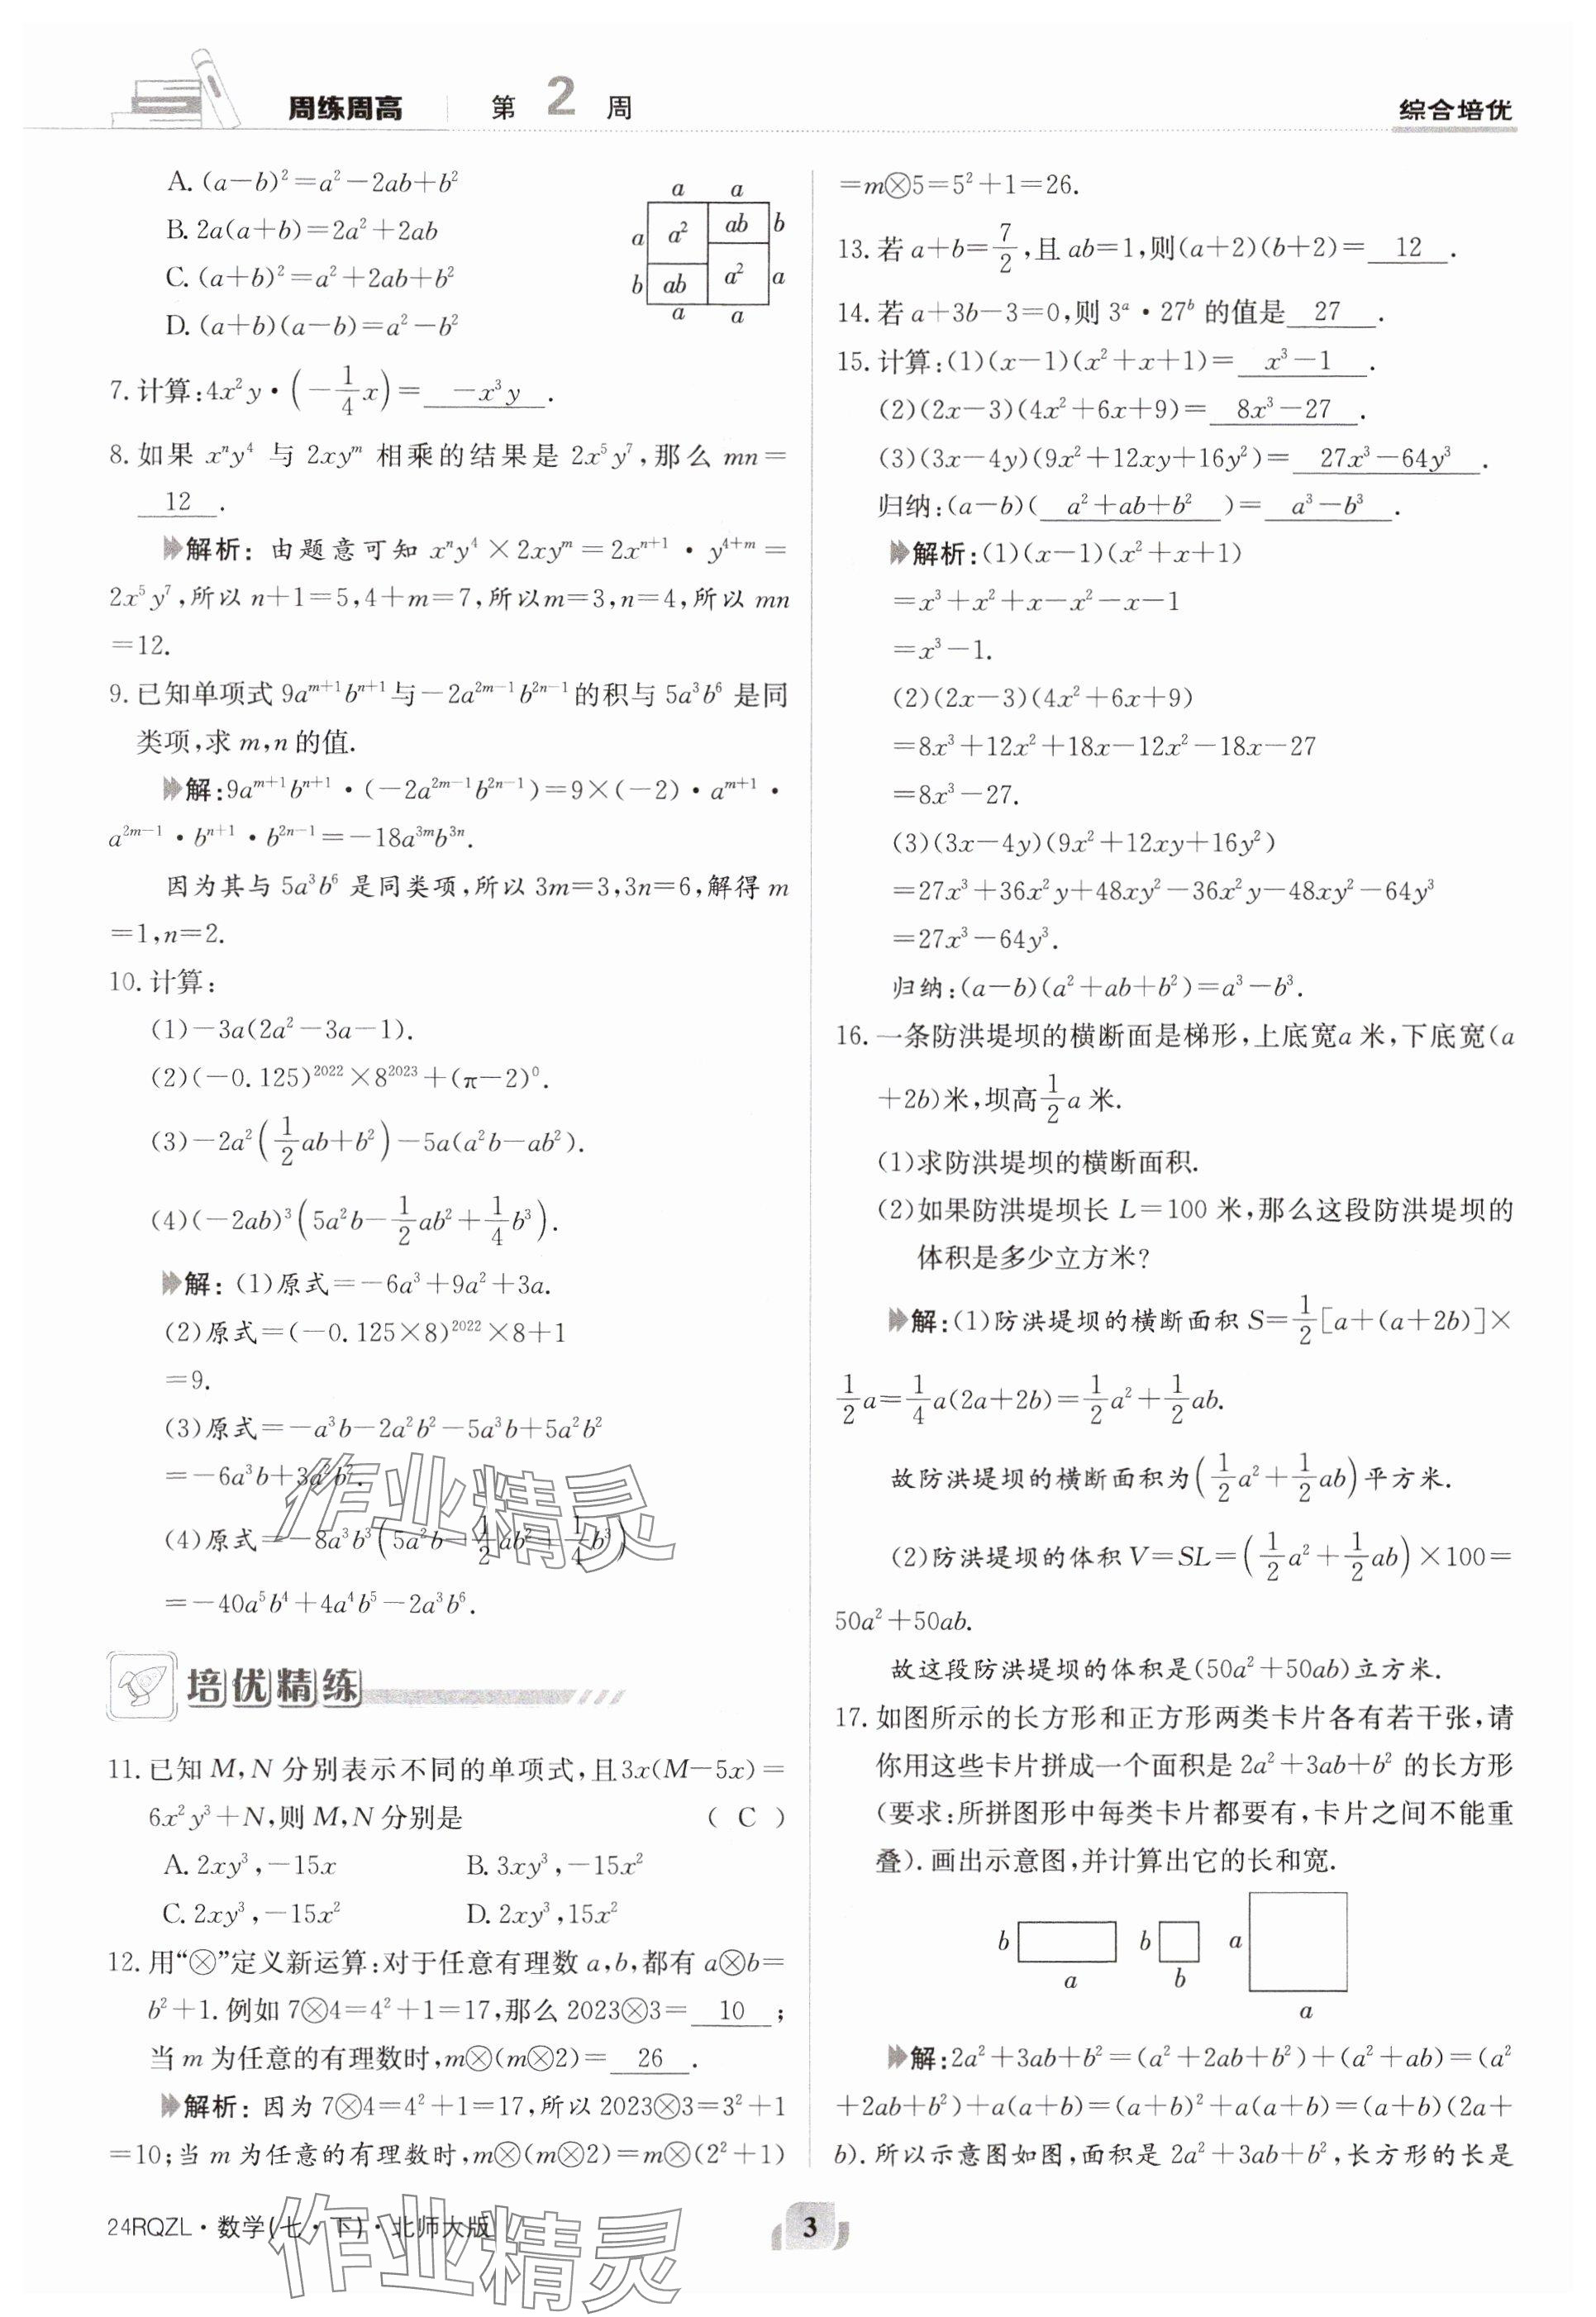 周练周高 第 2 周 综合培优
A. (a－b)²＝a²－2ab＋b²
B. 2a(a＋b)＝2a²＋2ab
C. (a＋b)²＝a²＋2ab＋b²
D. (a＋b)(a－b)＝a²－b²
a a
a a² ab b
b ab a² a
a a
7. 计算:4x²y·(－1/4x)＝ －x³y .
8. 如果 xⁿy⁴ 与 2xyᵐ 相乘的结果是 2x⁵y⁷,那么 mn＝
12 .
解析: 由题意可知 xⁿy⁴×2xyᵐ＝2xⁿ⁺¹·y⁴⁺ᵐ＝
2x⁵y⁷,所以 n＋1＝5,4＋m＝7,所以m＝3,n＝4,所以 mn
＝12.
9. 已知单项式 9aᵐ⁺¹bⁿ⁺¹与－2a²ᵐ⁻¹b²ⁿ⁻¹的积与 5a³b⁶ 是同
类项,求 m,n 的值.
解:9aᵐ⁺¹bⁿ⁺¹·(－2a²ᵐ⁻¹b²ⁿ⁻¹)＝9×(－2)·aᵐ⁺¹·
a²ᵐ⁻¹·bⁿ⁺¹·b²ⁿ⁻¹＝－18a³ᵐb³ⁿ.
因为其与 5a³b⁶ 是同类项,所以 3m＝3,3n＝6,解得 m
＝1,n＝2.
10. 计算:
(1)－3a(2a²－3a－1).
(2)(－0.125)²⁰²²×8²⁰²³＋(π－2)⁰.
(3)－2a²(1/2ab＋b²)－5a(a²b－ab²).
(4)(－2ab)³(5a²b－1/2ab²＋1/4b³).
解: (1)原式＝－6a³＋9a²＋3a.
(2)原式＝(－0.125×8)²⁰²²×8＋1
＝9.
(3)原式＝－a³b－2a²b²－5a³b＋5a²b²
＝－6a³b＋3a²b².
(4)原式＝－8a³b³(5a²b－1/2ab²＋1/4b³)
＝－40a⁵b⁴＋4a⁴b⁵－2a³b⁶.
培优精练
11. 已知 M,N 分别表示不同的单项式,且3x(M－5x)＝
6x²y³＋N,则 M,N 分别是 ( C )
A. 2xy³,－15x B. 3xy³,－15x²
C. 2xy³,－15x² D. 2xy³,15x²
12. 用“⊗”定义新运算:对于任意有理数 a,b,都有 a⊗b＝
b²＋1. 例如 7⊗4＝4²＋1＝17,那么 2023⊗3＝ 10 ;
当 m 为任意的有理数时,m⊗(m⊗2)＝ 26 .
解析: 因为 7⊗4＝4²＋1＝17,所以 2023⊗3＝3²＋1
＝10;当 m 为任意的有理数时,m⊗(m⊗2)＝m⊗(2²＋1)
＝m⊗5＝5²＋1＝26.
13. 若 a＋b＝7/2,且 ab＝1,则(a＋2)(b＋2)＝ 12 .
14. 若 a＋3b－3＝0,则 3ᵃ·27ᵇ 的值是 27 .
15. 计算:(1)(x－1)(x²＋x＋1)＝ x³－1 .
(2)(2x－3)(4x²＋6x＋9)＝ 8x³－27 .
(3)(3x－4y)(9x²＋12xy＋16y²)＝ 27x³－64y³ .
归纳:(a－b)( a²＋ab＋b² )＝ a³－b³ .
解析:(1)(x－1)(x²＋x＋1)
＝x³＋x²＋x－x²－x－1
＝x³－1.
(2)(2x－3)(4x²＋6x＋9)
＝8x³＋12x²＋18x－12x²－18x－27
＝8x³－27.
(3)(3x－4y)(9x²＋12xy＋16y²)
＝27x³＋36x²y＋48xy²－36x²y－48xy²－64y³
＝27x³－64y³.
归纳:(a－b)(a²＋ab＋b²)＝a³－b³.
16. 一条防洪堤坝的横断面是梯形,上底宽a 米,下底宽(a
＋2b)米,坝高1/2a 米.
(1)求防洪堤坝的横断面积.
(2)如果防洪堤坝长 L＝100 米,那么这段防洪堤坝的
体积是多少立方米?
解:(1)防洪堤坝的横断面积 S＝1/2[a＋(a＋2b)]×
1/2a＝1/4a(2a＋2b)＝1/2a²＋1/2ab.
故防洪堤坝的横断面积为(1/2a²＋1/2ab)平方米.
(2)防洪堤坝的体积 V＝SL＝(1/2a²＋1/2ab)×100＝
50a²＋50ab.
故这段防洪堤坝的体积是(50a²＋50ab)立方米.
17. 如图所示的长方形和正方形两类卡片各有若干张,请
你用这些卡片拼成一个面积是 2a²＋3ab＋b² 的长方形
(要求:所拼图形中每类卡片都要有,卡片之间不能重
叠). 画出示意图,并计算出它的长和宽.
b b a
a b a
解:2a²＋3ab＋b²＝(a²＋2ab＋b²)＋(a²＋ab)＝(a²
＋2ab＋b²)＋a(a＋b)＝(a＋b)²＋a(a＋b)＝(a＋b)(2a＋
b). 所以示意图如图,面积是 2a²＋3ab＋b²,长方形的长是
作业精灵
24RQZL·数学(七·下)·北师大版
3
作业精灵